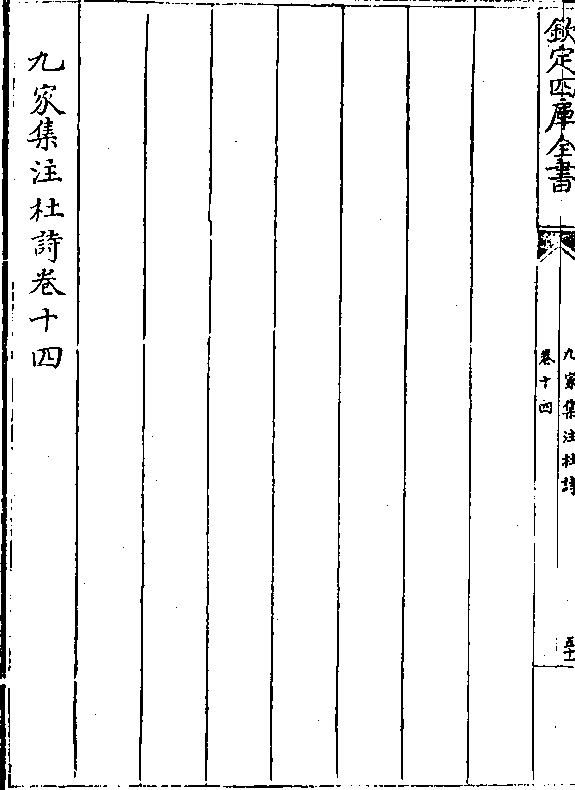 欽定四庫全書
九家集注杜詩
卷十四
五十
九家集注杜詩卷十四